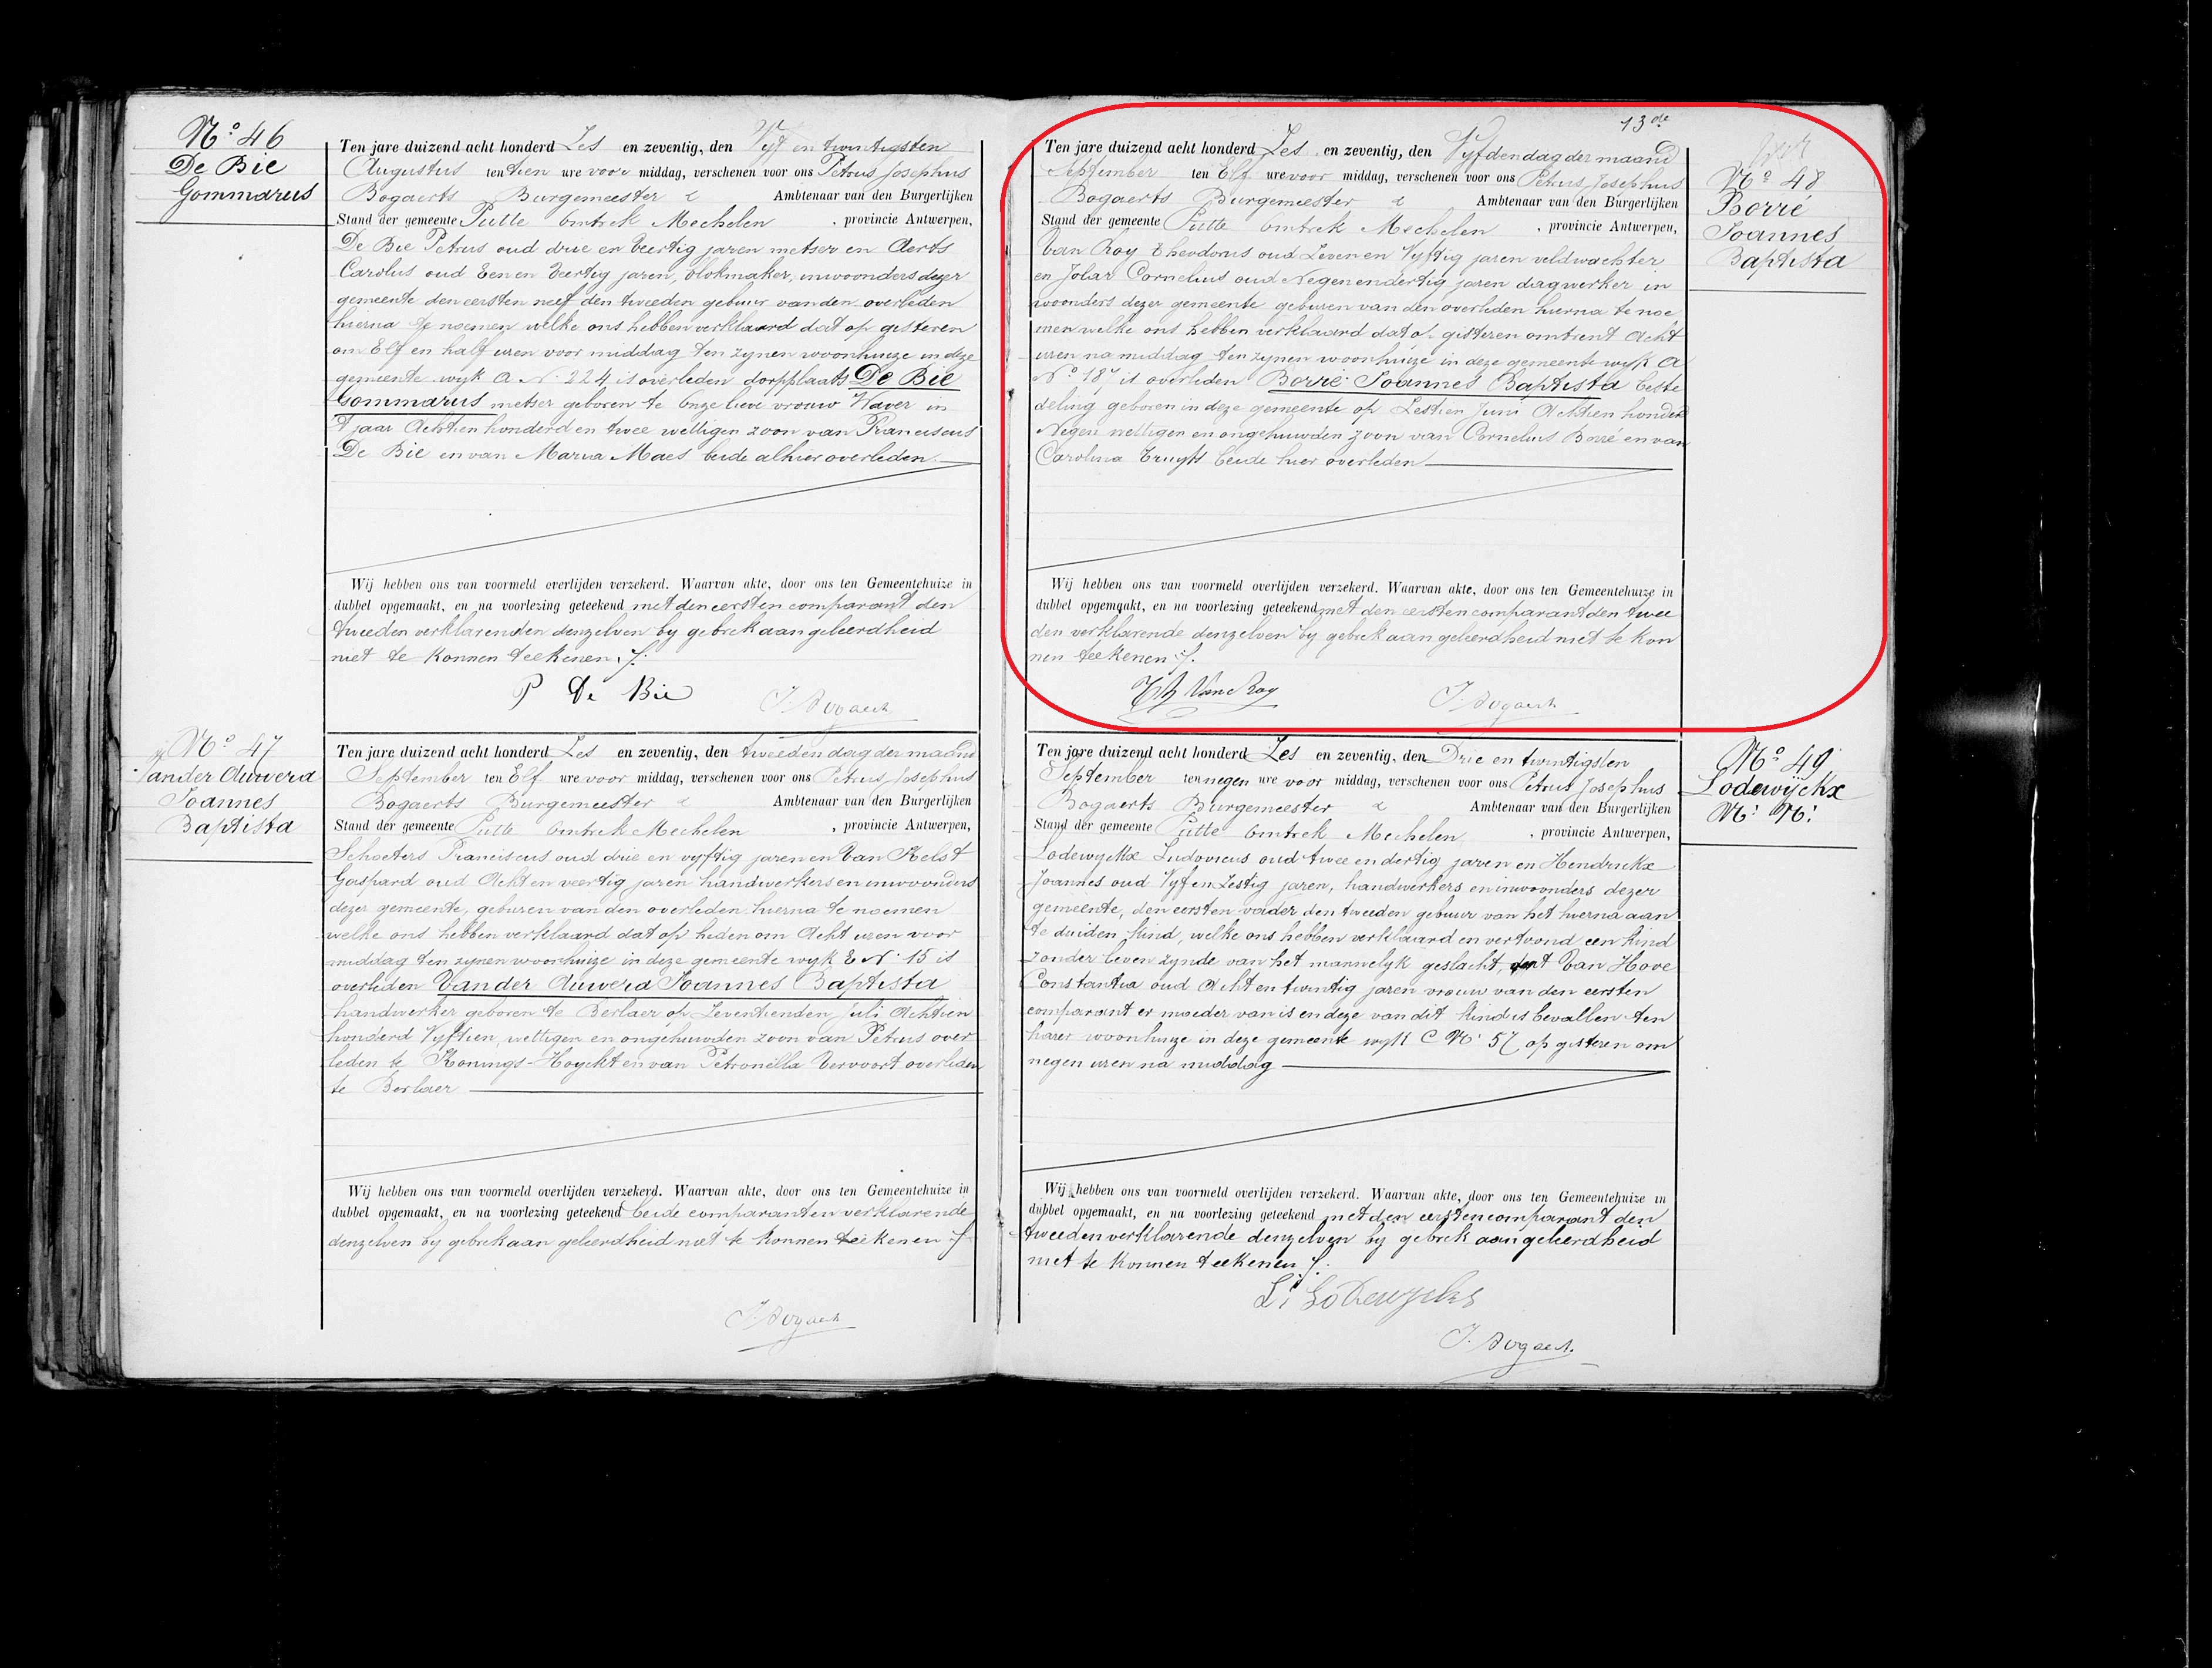 Nº 46
De Bie
Gommarus
Ten jare duizend acht honderd Zes en zeventig, den Vyf en twintigsten
Augustus ten tien ure voor middag, verschenen voor ons Petrus Josephus
Bogaerts Burgemeester Ambtenaar van den Burgerlijken
Stand der gemeente Putte omtrek Mechelen , provincie Antwerpen,
De Bie Petrus oud drie en Veertig jaren metser en Aerts
Carolus oud Een en Veertig jaren, blokmaker, inwoonders dezer
gemeente den eersten neef den tweeden gebuur van den overleden
hierna te noemen welke ons hebben verklaard dat op gisteren
om Elf en half uren voor middag ten zynen woonhuize in deze
gemeente wyk A Nº 224 is overleden dorpplaats De Bie
Gommarus metser geboren te Onze lieve vrouw Waver in
'T jaar Achtien honderd en twee wettigen zoon van Franciscus
De Bie en van Maria Maes beide alhier overleden.
Wij hebben ons van voormeld overlijden verzekerd. Waarvan akte, door ons ten Gemeentehuize in
dubbel opgemaakt, en na voorlezing geteekend met den eersten comparant den
tweeden verklarenden denzelven by gebrek aan geleerdheid
niet te konnen teekenen ./.
P De Bie
J. Bogaerts
Nº 47
Vander Auwera
Joannes
Baptista
Ten jare duizend acht honderd Zes en zeventig, den tweeden dag der maand
September ten Elf ure voor middag, verschenen voor ons Petrus Josephus
Bogaerts Burgemeester Ambtenaar van den Burgerlijken
Stand der gemeente Putte omtrek Mechelen , provincie Antwerpen,
Schoeters Franciscus oud drie en vyftig jaren en Van Aelst
Gaspard oud Acht en veertig jaren handwerkers en inwoonders
dezer gemeente, geburen van den overleden hierna te noemen
welke ons hebben verklaard dat op heden om Acht uren voor
middag ten zynen woonhuize in deze gemeente wyk E Nº 15 is
overleden Vander Auwera Joannes Baptista
handwerker geboren te Berlaer op Zeventienden Juli Achtien
honderd Vyftien, wettigen en ongehuwden zoon van Petrus over
leden te Konings-Hoyckt en van Petronilla Vervoort overleden
te Berlaer
Wij hebben ons van voormeld overlijden verzekerd. Waarvan akte, door ons ten Gemeentehuize in
dubbel opgemaakt, en na voorlezing geteekend beide comparanten verklarende
denzelven by gebrek aan geleerdheid niet te konnen teekenen ./.
J. Bogaerts
13de
Nº 48
Borré
Joannes
Baptista
Ten jare duizend acht honderd Zes en zeventig, den Vyfden dag der maand
September ten Elf ure voor middag, verschenen voor ons Petrus Josephus
Bogaerts Burgemeester Ambtenaar van den Burgerlijken
Stand der gemeente Putte omtrek Mechelen , provincie Antwerpen,
Van Roy Theodorus oud Zeven en Vyftig jaren veldwachter
en Cornelius oud Negenendertig jaren dagwerker in
woonders dezer gemeente geburen van den overleden hierna te noe
men welke ons hebben verklaard dat op gisteren omtrent Acht
uren na middag ten zynen woonhuize in deze gemeente wyk A
Nº 187 is overleden Borré Joannes Baptista beste
deling geboren in deze gemeente op Zestien Juni Achtien honderd
Negen wettigen en ongehuwden zoon van Cornelius Borré en van
Carolina Truyts beide hier overleden
Wij hebben ons van voormeld overlijden verzekerd. Waarvan akte, door ons ten Gemeentehuize in
dubbel opgemaakt, en na voorlezing geteekend met den eersten comparant den twee
den verklarende denzelven by gebrek aan geleerdheid niet te kon
nen teekenen ./.
Th Van Roy
J. Bogaerts
Nº 49
Lodewyckx
N: N:
Ten jare duizend acht honderd Zes en zeventig, den Drie en twintigsten
September ten negen ure voor middag, verschenen voor ons Petrus Josephus
Bogaerts Burgemeester Ambtenaar van den Burgerlijken
Stand der gemeente Putte omtrek Mechelen , provincie Antwerpen,
Lodewyckx Ludovicus oud twee en dertig jaren en Hendrickx
Joannes oud Vyf en Zestig jaren, handwerkers en inwoonders dezer
gemeente, den eersten vader den tweeden gebuur van het hierna aan
te duiden kind, welke ons hebben verklaard en vertoond een kind
zonder leven zynde van het mannelyk geslacht, dat Van Hove
Constantia oud Acht en twintig jaren vrouw van den eersten
comparant er moeder van is en deze van dit kind is bevallen ten
harer woonhuize in deze gemeente wyk C Nº 57 op gisteren om
negen uren na middag
Wij hebben ons van voormeld overlijden verzekerd. Waarvan akte, door ons ten Gemeentehuize in
dubbel opgemaakt, en na voorlezing geteekend met den eersten comparant den
tweeden verklarende denzelven by gebrek aan geleerdheid
niet te konnen teekenen ./.
L. Lodewyckx
J. Bogaerts